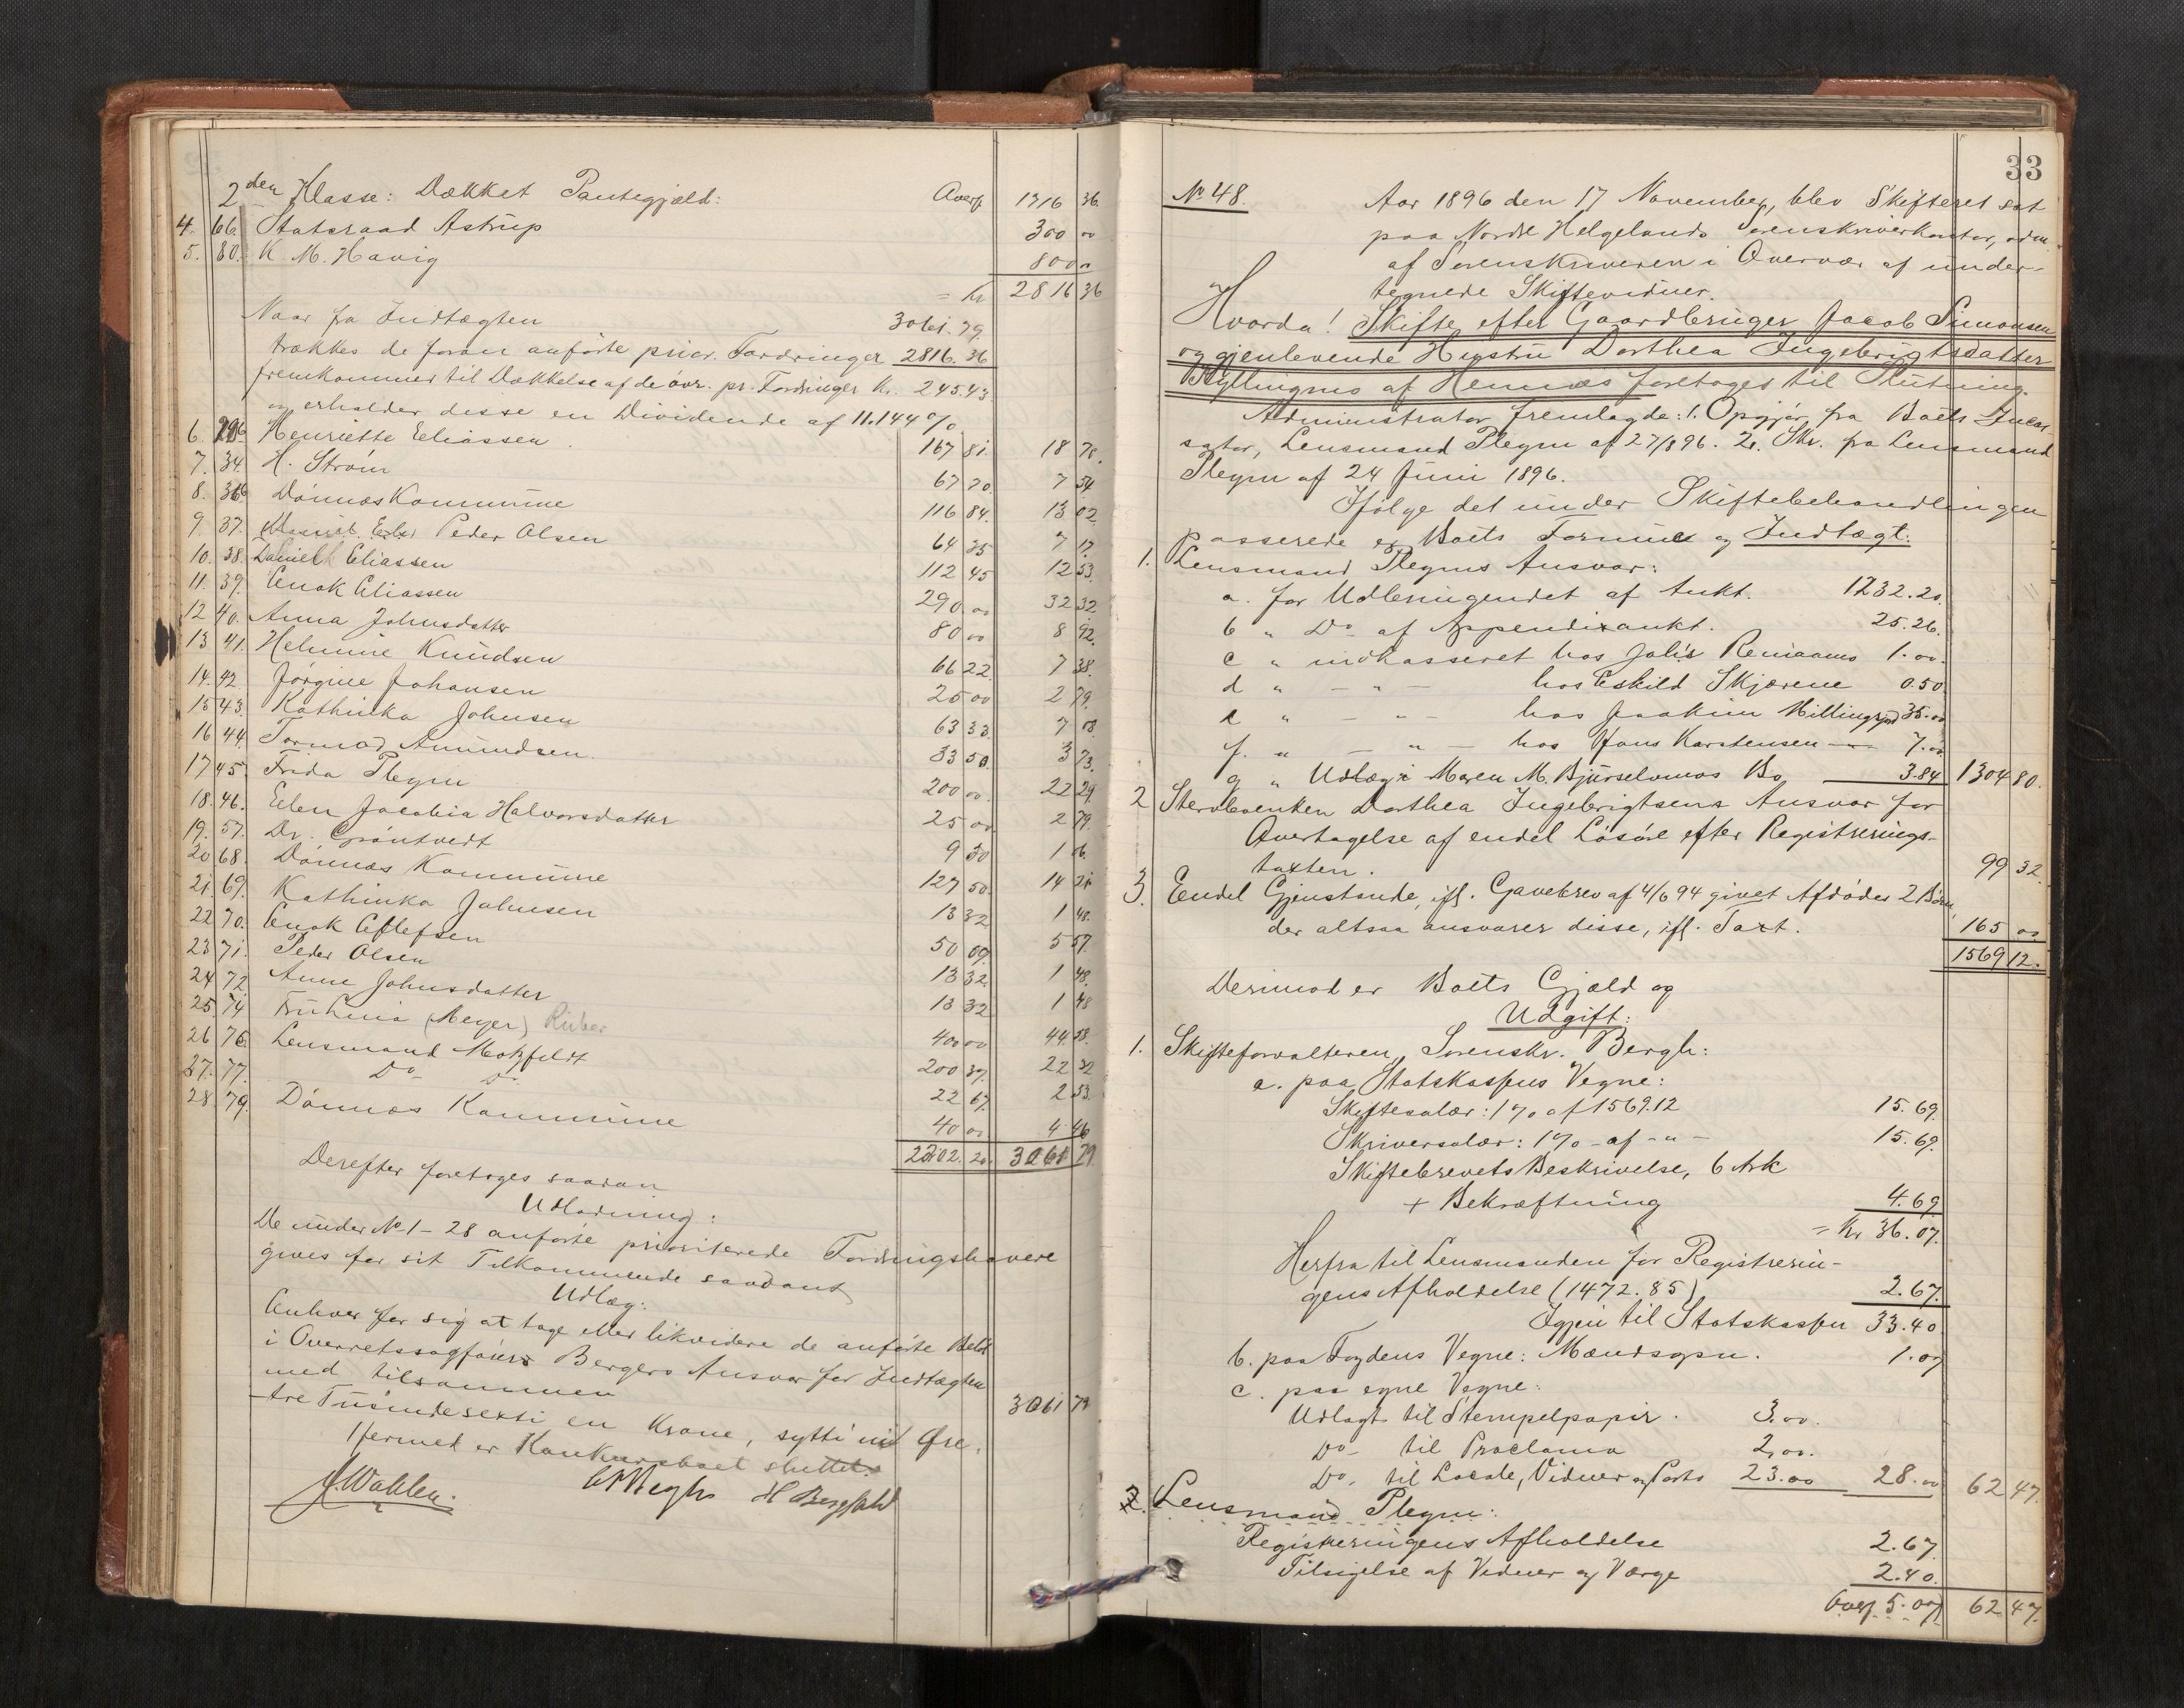 2den Klasse: Dækket Pantegjæld: Overf. 1716 36.
4. 66. Statsraad Astrup 300 00
5. 80. K. M. Havig 800 00
= Kr 2816 36
Naar fra Indtægten 3061.79.
trækkes de foran anførte prior. Fordringer 2816.36
fremkommer til Dækkelse af de øvr. pr. Fordringer Kr. 245.43
og erholder disse en Dividende af 11.144 %
6. Henriette Eliassen 167 81. 18 70.
7. 34. H. Strøm 67 70. 7 54
8. 36 Dønnæs Kommune 116 84. 13 02.
9. 37. Peder Olsen 64 35 7 17.
10. 38. Daniel Eliassen 112 45 12 53.
11. 39. Enok Eliassen 290 00 32 32
12 40. Anna Johnsdatter 80 00 8 92.
13 41. Helmine Knudsen 66 22. 7 38.
14. 42. Jørgine Johansen 25 00 2 79.
15 43. Kathinka Johnsen 63 33 7 08.
16 44. Tormod Amundsen. 33 50. 3 73.
17 45. Frida Pleym 200 00. 22 29.
18. 46. Elen Jacobia Halvorsdatter 25 00 2 79.
19. 57. Dr. Grøntvedt 9 50 1 06.
20 68. Dønnæs Kommune 127 50. 14 21.
21. 69. Kathinka Johnsen 13 32 1 48.
22 70. Enok Ellefsen 50 09. 5 57.
23 71. Peder Olsen 13 32. 1 48.
24 72. Anne Johnsdatter 13 32 1 48
25. 74 Fru Lina (Meyer) 400 00 44 58.
26 76. Lensmand Motzfeldt 200 37. 22 32
27. 77. Do Do 22 67. 2 53.
28 79. Dønnæs Kommune 40 00 4 46
2202. 20. 3061 79.
Derefter foretoges saadan
Udlodning:
De under No 1-28 anførte prioriterede Fordringshavere
gives for sit Tilkommende saadant
Udlæg:
Enhver for sig at tage eller likvidere de anførte Beløb
i Overretssagfører Bergers Ansvar for Indtægten
med tilsammen 3061 79
tre Tusinde sexti en Krone, sytti ni Øre.
Hermed er Konkursboet sluttet.
J. Wahlen.
33
No 48. Aar 1896 den 17 November, blev Skifteret sat
paa Nordre Helgelands Sorenskriverkontor, adm.
af Sorenskriveren i Overvær af under-
tegnede Skiftevidner.
Hvorda! Skifte efter Gaardbruger Jacob Simonsen
og gjenlevende Hustru Dorthea Ingebrigtsdatter
Hyllingmo af Hemnæs foretoges til Slutning.
Administrator fremlagde: 1. Opgjør fra Boets Incas-
sator, Lensmand Pleym af 27/8 96. 2. Skr. fra Lensmand
Pleym af 24 Juni 1896.
Ifølge det under Skiftebehandlingen
passerede er Boets Formue og Indtægt:
1. Lensmand Pleyms Ansvar:
a. for Udbringendet af Aukt. 1232.20.
b " Do af Appendixaukt. 25.26.
c " indkasseret hos 1.00.
d " - " - hos Eskild Skjærene 0.50.
e " - " - hos Joakim 35.00
f. " - " - hos Hans Karstensen 7.00
g " Udlæg i Maren M. Bjurselvmos Bo 3.84 1304 80.
2 Stervboenken Dorthea Ingebrigtsens Ansvar for
Overtagelse af endel Løsøre efter Registrerings-
taxten. 99 32.
3. Endel Gjenstande, ifl. Gavebrev af 4/6 94 givet Afdødes 2 Børn,
der altsaa ansvarer disse, ifl. Taxt. 165 00
1569 12.
Derimod er Boets Gjæld og
Udgift:
1. Skifteforvalteren, Sorenskr. Bergh:
a. paa Statskassens Vegne:
Skiftesalær: 1 % af 1569.12 15.69.
Skriversalær: 1 % - af - " - 15.69.
Skiftebrevets Beskrivelse, 6 Ark
+ Bekræftning 4.69
= Kr 36.07.
Herfra til Lensmanden for Registrerin-
gens Afholdelse (1472.85) 2.67.
Igjen til Statskassen 33.40.
b. paa Fogdens Vegne: Mændsopn. 1.07
c. paa egne Vegne:
Udlagt til Stempelpapir. 3.00.
Do til Proclama 2.00.
Do. til Locale, Vidner og Porto 23.00 28.00 62 47.
2. Lensmand Pleym:
Registreringens Afholdelse 2.67.
Tilsigelse af Vidner og Værge 2.40.
Overf. 5.07 62 47.